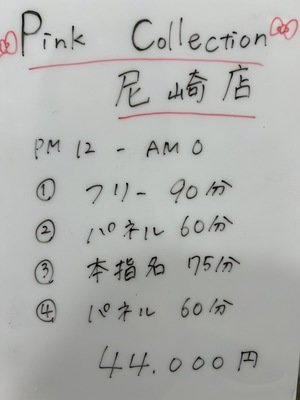 Pink Collection
尼崎店
PM 12 - AM 0
① フリー 90分
② パネル 60分
③ 本指名 75分
④ パネル 60分
44.000円